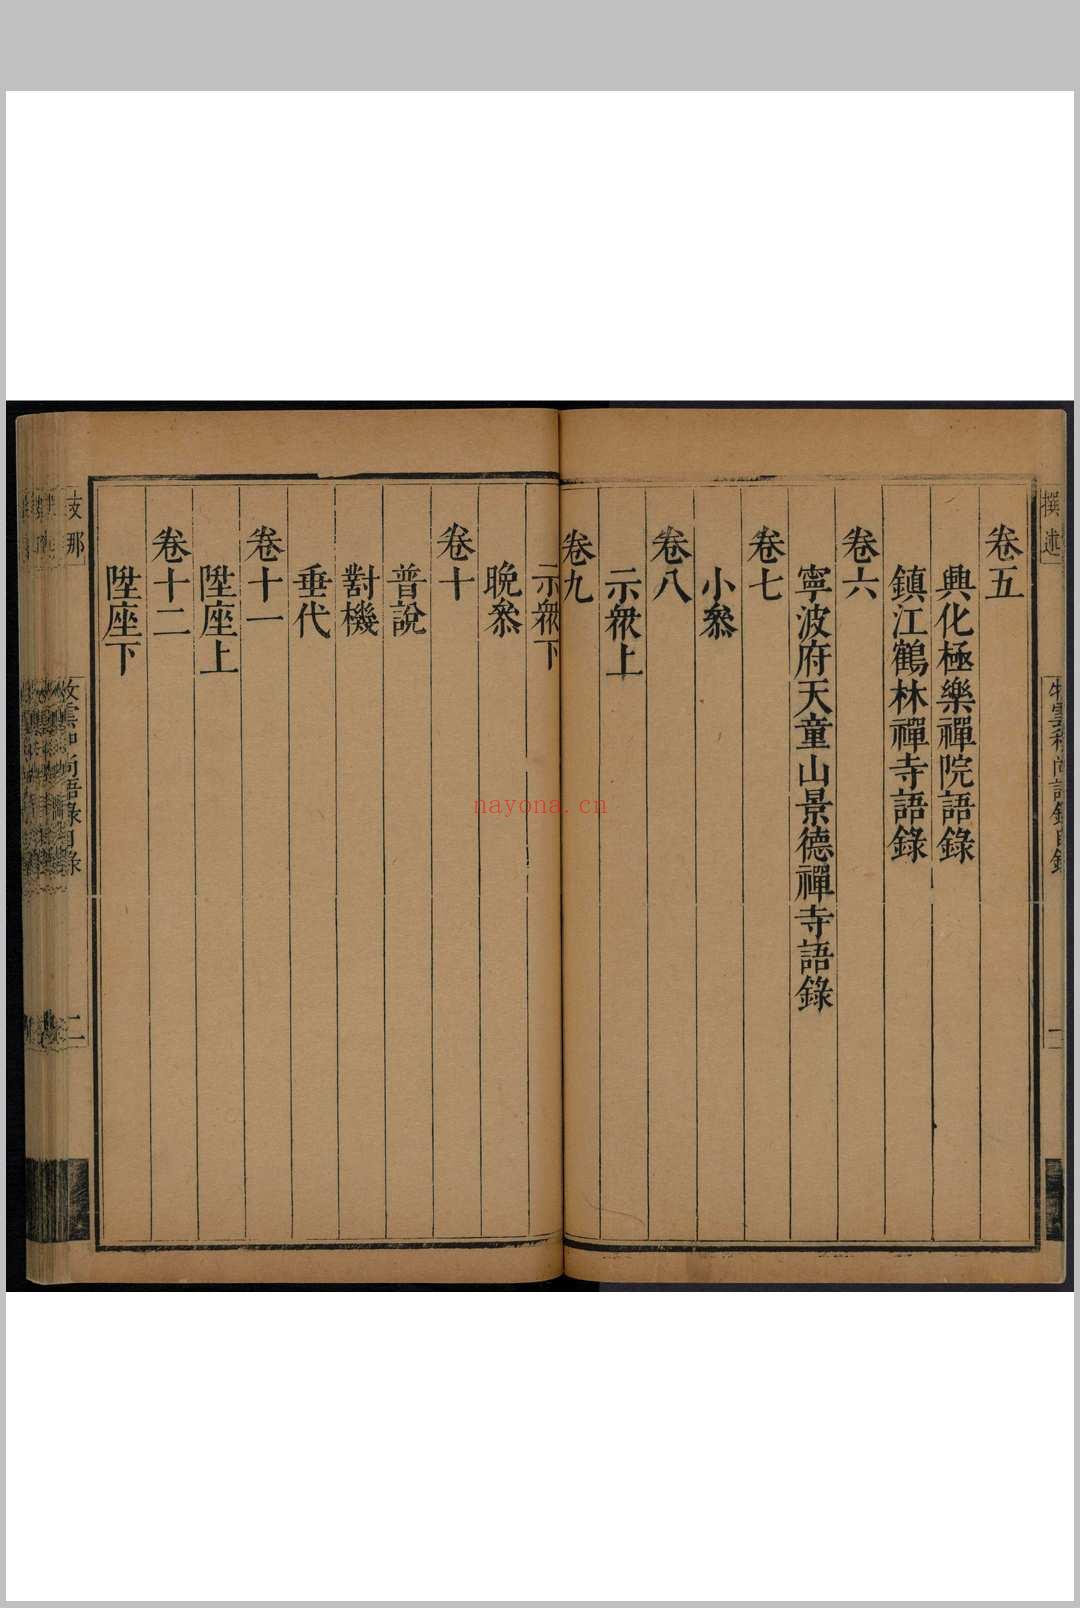 撰述
牧雲和尚語錄目錄
一
卷五
興化極樂禪院語錄
鎮江鶴林禪寺語錄
卷六
寧波府天童山景德禪寺語錄
卷七
小叅
卷八
示衆上
卷九
示衆下
晚叅
卷十
普說
對機
垂代
卷十一
陞座上
卷十二
陞座下
支那
牧雲和尚語錄目錄
二
nayona.cn